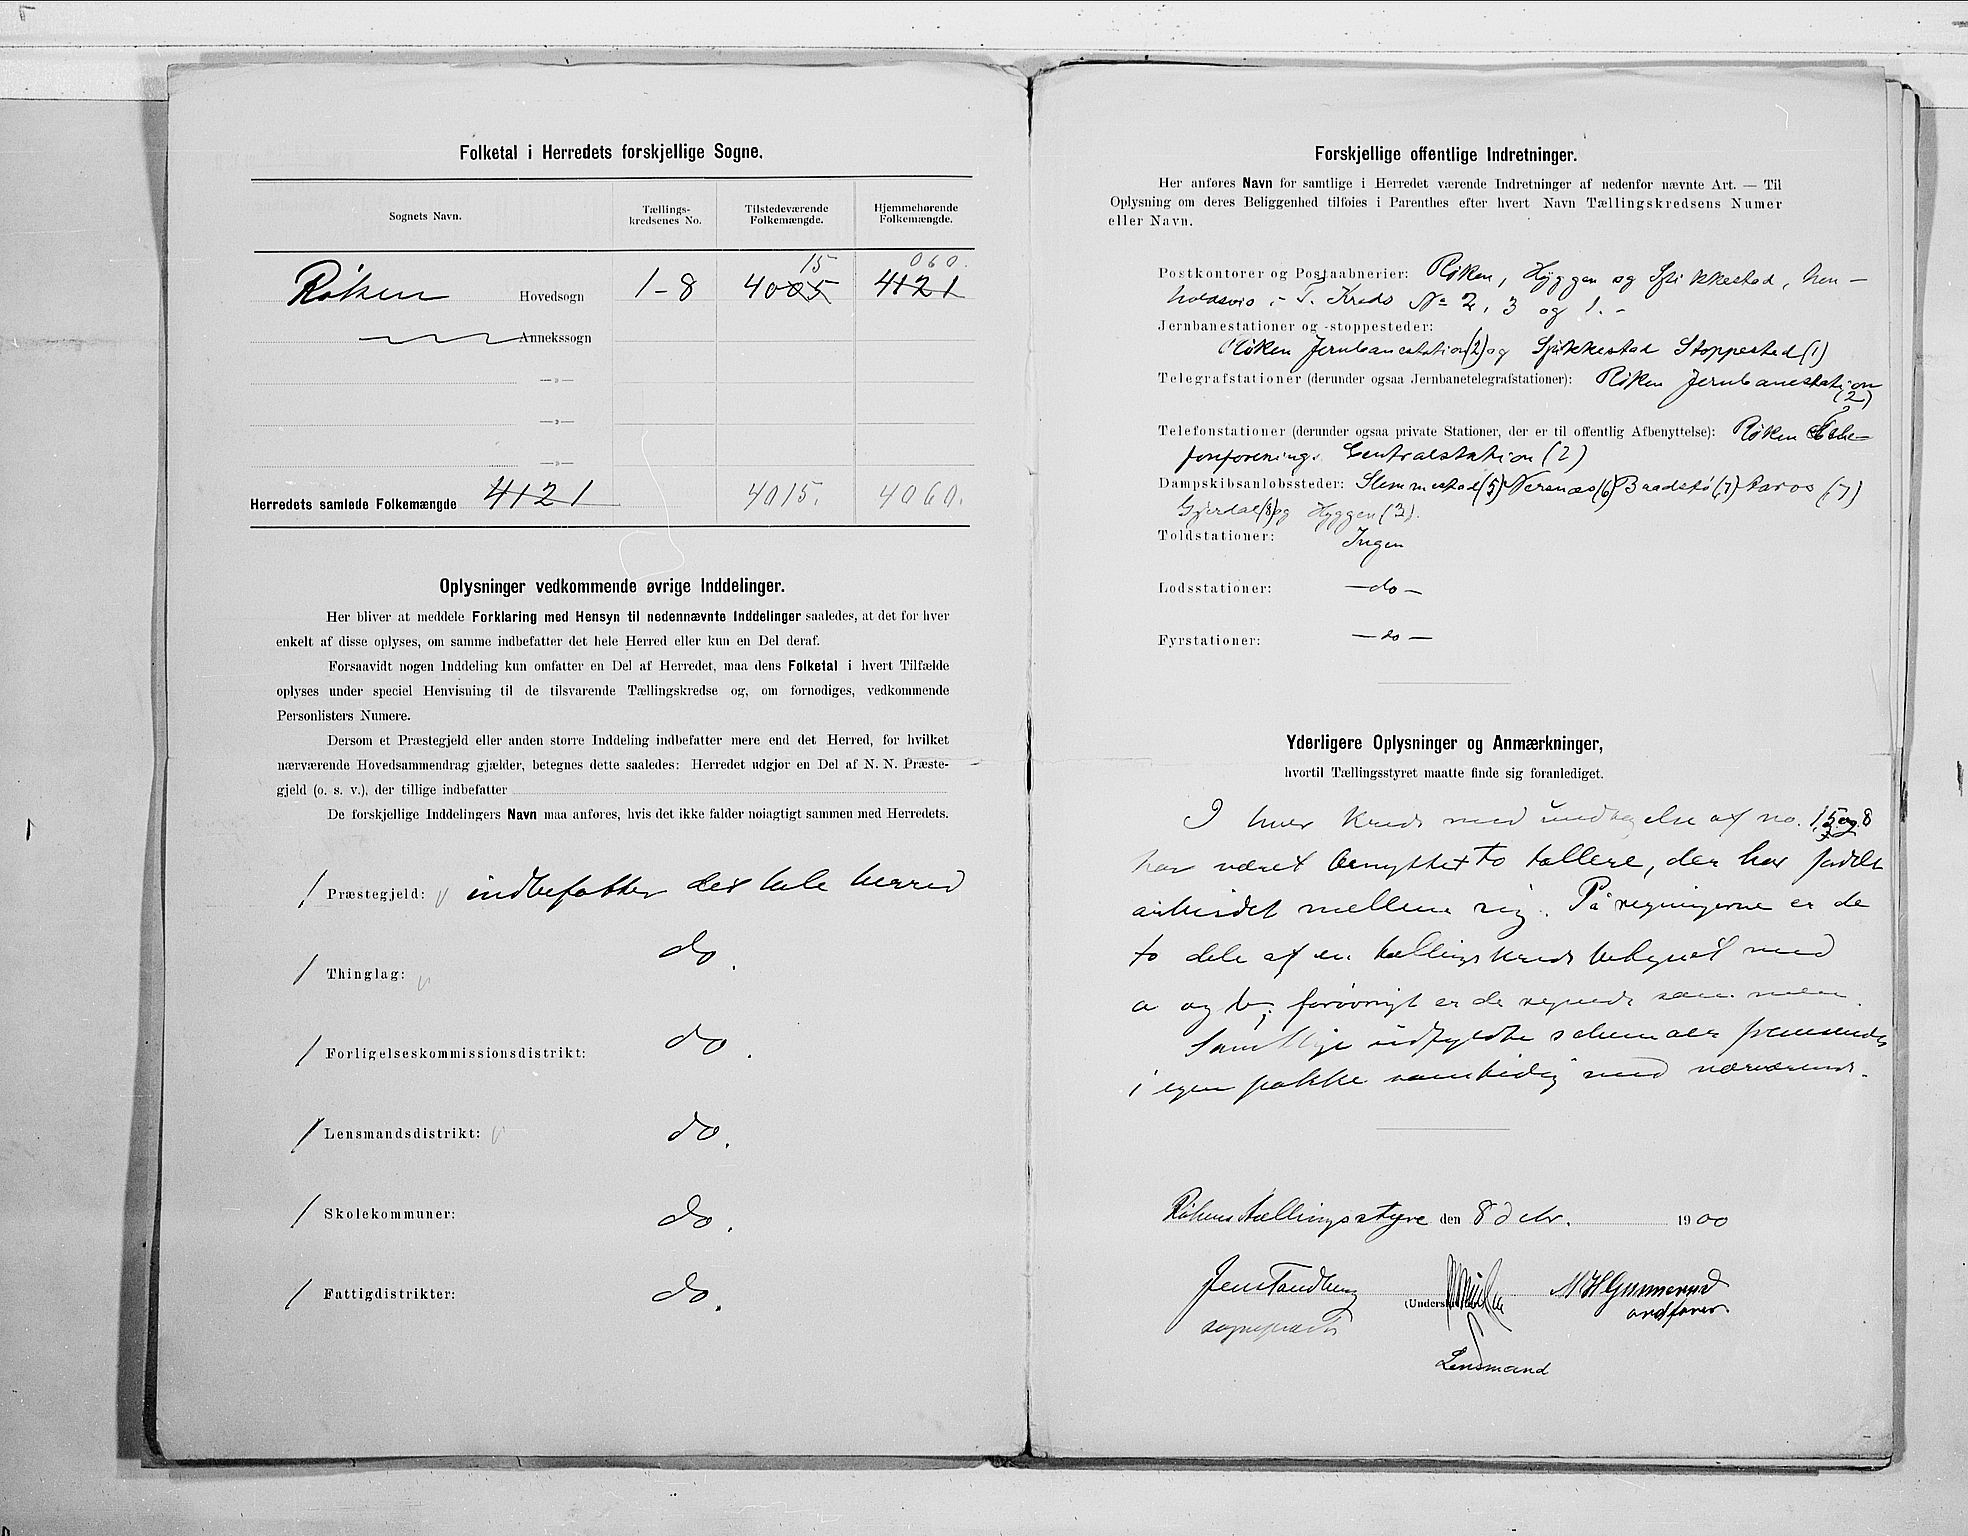 Folketal i Herredets forskjellige Sogne.
Sognets Navn. Tællings-kredsenes No. Tilstedeværende Folkemængde. Hjemmehørende Folkemængde.
15 060.
Røken Hovedsogn 1-8 4005 4121
Annekssogn
—»—
—»—
—»—
Herredets samlede Folkemængde 4121 4015. 4060.
Oplysninger vedkommende øvrige Inddelinger.
Her bliver at meddele Forklaring med Hensyn til nedennævnte Inddelinger saaledes, at det for hver
enkelt af disse oplyses, om samme indbefatter det hele Herred eller kun en Del deraf.
Forsaavidt nogen Inddeling kun omfatter en Del af Herredet, maa dens Folketal i hvert Tilfælde
oplyses under speciel Henvisning til de tilsvarende Tællingskredse og, om fornødiges, vedkommende
Personlisters Numere.
Dersom et Præstegjeld eller anden større Inddeling indbefatter mere end det Herred, for hvilket
nærværende Hovedsammendrag gjælder, betegnes dette saaledes: Herredet udgjør en Del af N. N. Præste-
gjeld (o. s. v.), der tillige indbefatter
De forskjellige Inddelingers Navn maa anføres, hvis det ikke falder nøiagtigt sammen med Herredets.
/ Præstegjeld: indbefatter det hele herred
/ Thinglag: do.
/ Forligelseskommissionsdistrikt: do.
/ Lensmandsdistrikt: do.
/ Skolekommuner: do.
/ Fattigdistrikter: do.
Forskjellige offentlige Indretninger.
Her anføres Navn for samtlige i Herredet værende Indretninger af nedenfor nævnte Art. — Til
Oplysning om deres Beliggenhed tilføies i Parenthes efter hvert Navn Tællingskredsens Numer
eller Navn.
Postkontorer og Postaabnerier: Røken, Hyggen og Spikkestad, hen-
holdsvis i T. Kreds No 2, 3 og 1.-
Jernbanestationer og -stoppesteder:
Røken Jernbanestation (2) og Spikkestad Stoppested (1)
Telegrafstationer (derunder ogsaa Jernbanetelegrafstationer): Røken Jernbanestation
(2)
Telefonstationer (derunder ogsaa private Stationer, der er til offentlig Afbenyttelse): Røken Tele-
fonforenings Centralstation (2)
Dampskibsanløbssteder: Slemmestad (5) Nersnæs (6) Baadstø (7) (7)
Gjerdal (8) og Hyggen (3).
Toldstationer: Ingen
Lodsstationer: — do —
Fyrstationer: — do —
Yderligere Oplysninger og Anmærkninger,
hvortil Tællingsstyret maatte finde sig foranlediget.
I hver kreds med undtagelse af no. 1, 5 og 8
har været benyttet to tællere, der har fordelt
arbeidet mellem sig. På regningerne er de
to dele af en tællingskreds betegnet med
a og b; forøvrigt er de regnede sammen.
Samtlige udfyldte schemaer fremsendes
i egen pakke samtidig med nærværende.
Røkens tællingsstyre den 8 debr. 1900
Jens Tandberg M H Gunnerud
(Underskrift) ordfører
sogneprest
Lensmand